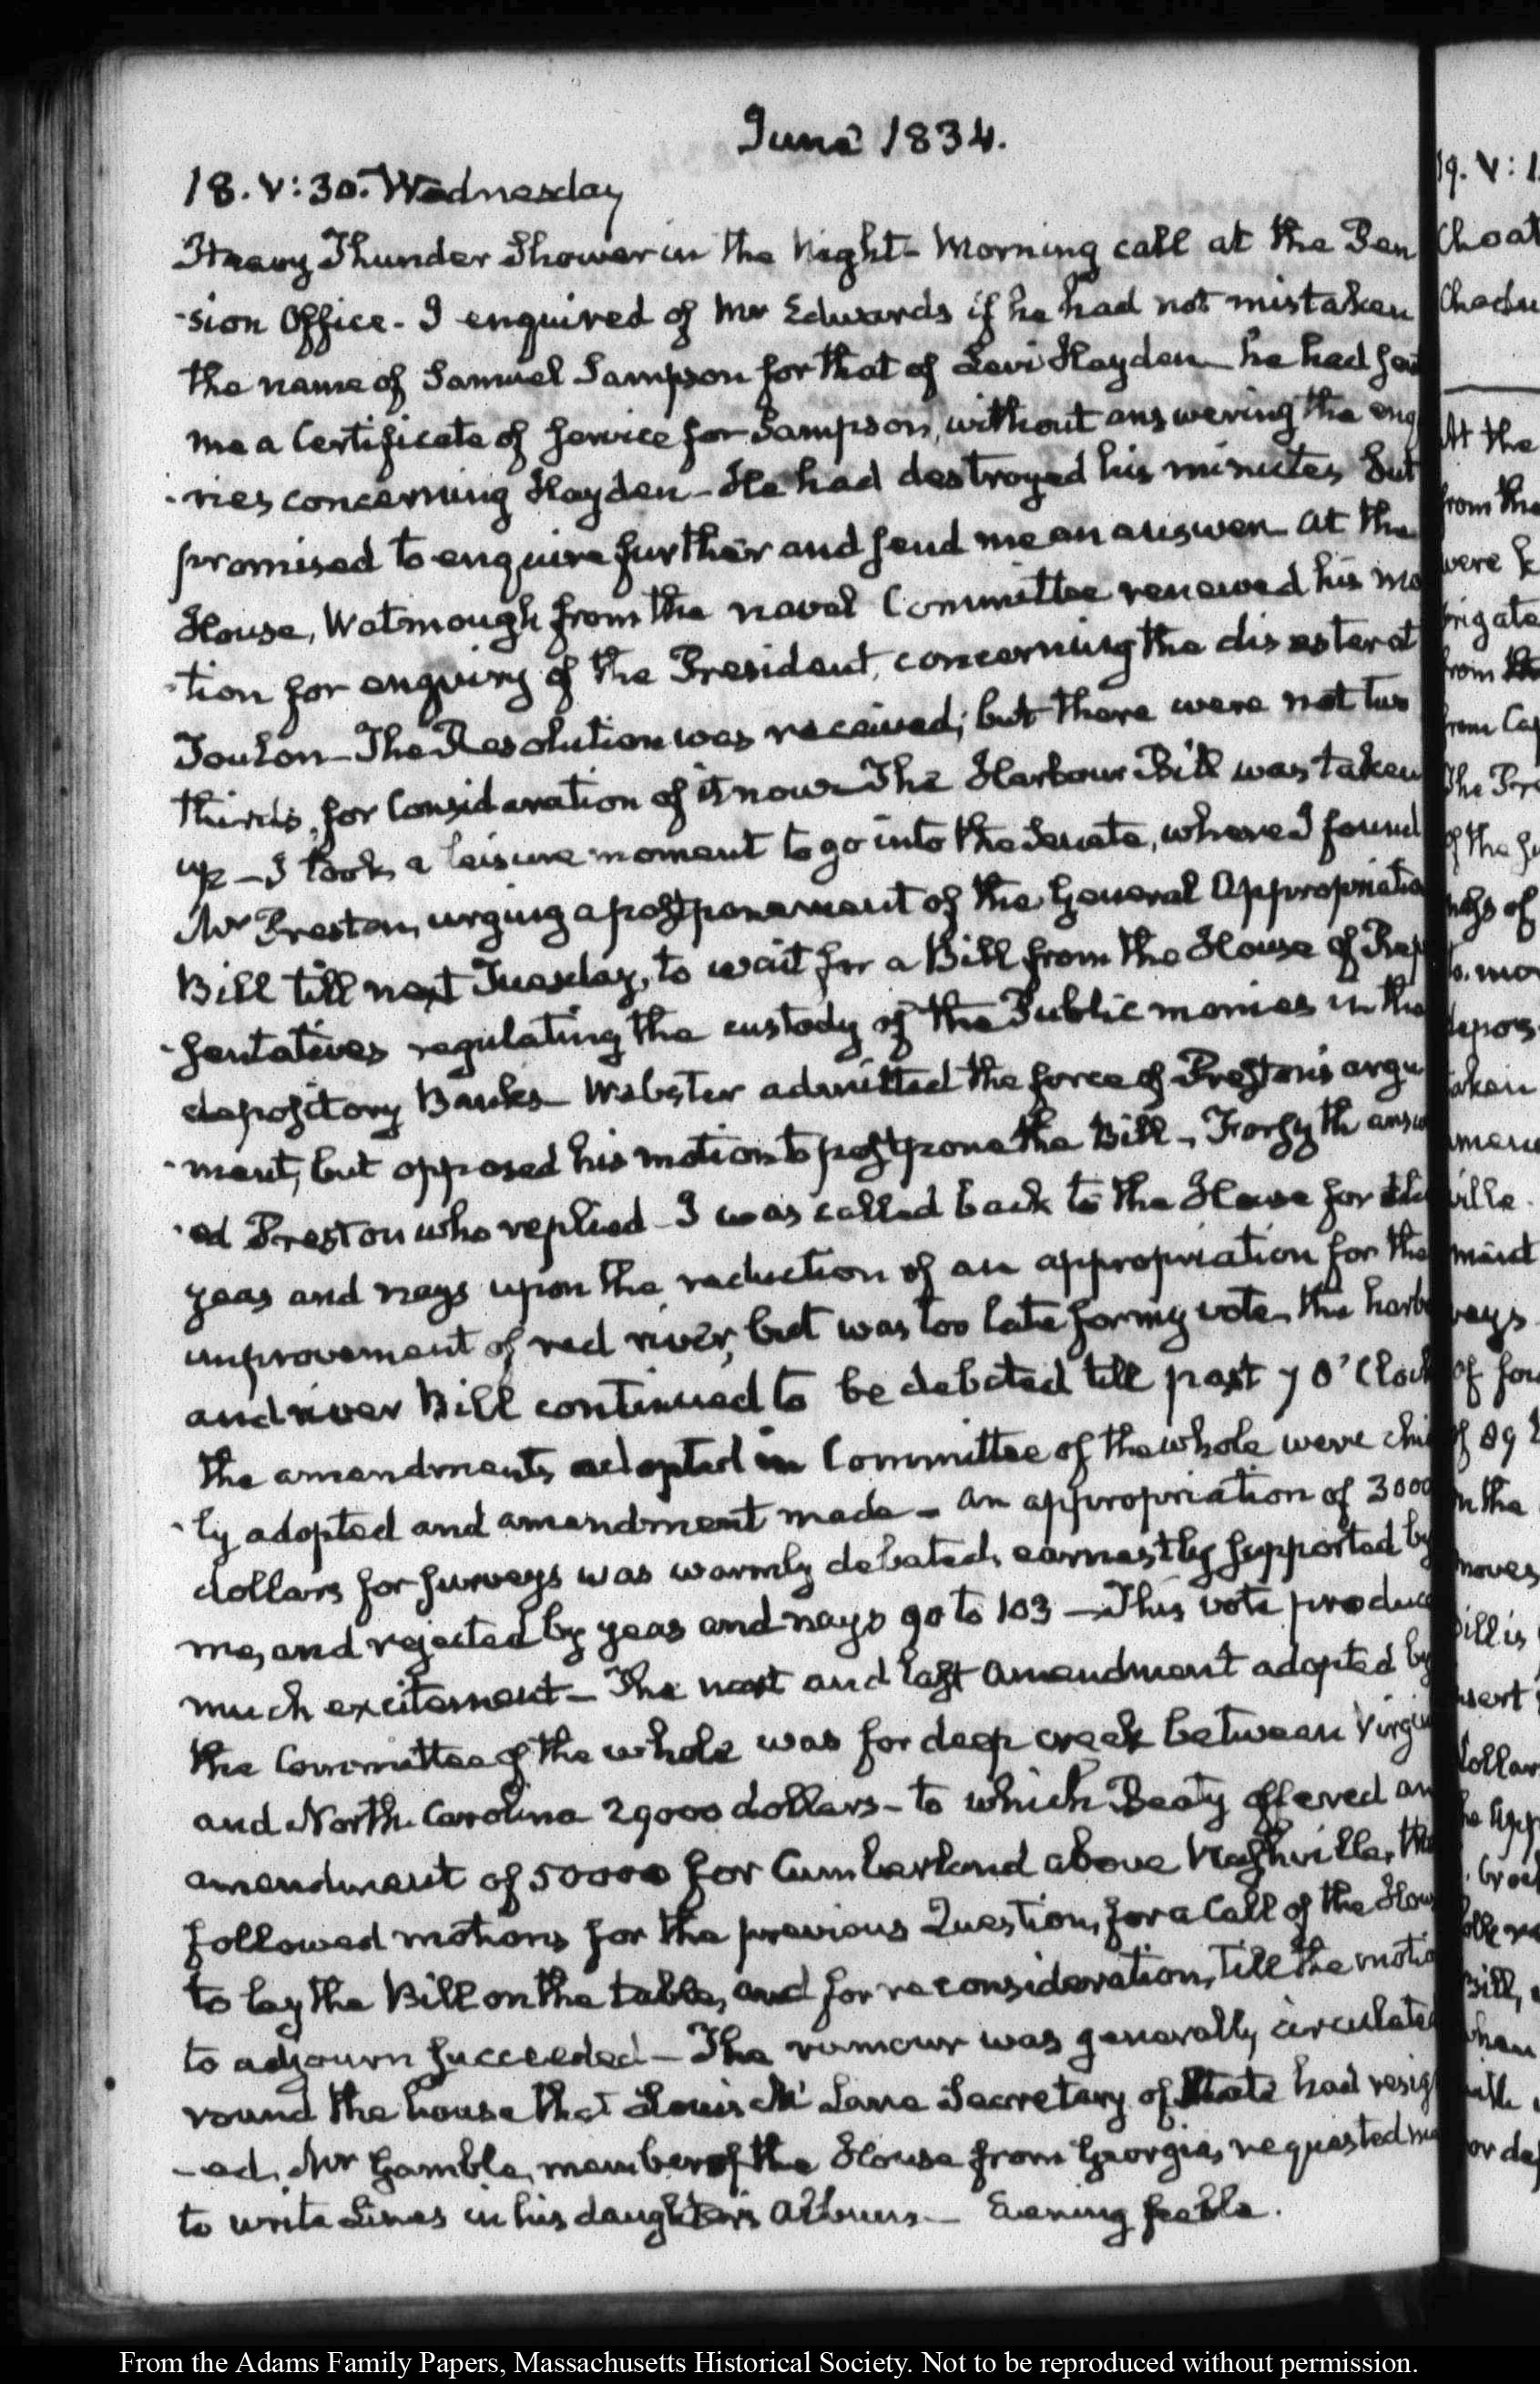 June 1834.
18. V:30. Wednesday
Heavy Thunder Shower in the Night - Morning call at the Pen
-sion Office - I enquired of Mr Edwards if he had not mistaken
the name of Samuel Sampson for that of Levi Hayden - he had sen
me a Certificate of Service for Sampson, without answering the enq
-ries concerning Hayden - He had destroyed his minutes but
promised to enquire further and send me an answer - At the
House, Watmough from the naval Committee renewed his mo
-tion for enquiry of the President, concerning the disaster at
Toulon - The Resolution was received; but there were not two
thirds, for Consideration of it now - The Harbour Bill was taken
up - I took a leisure moment to go into the Senate, where I found
Mr Preston, urging a postponement of the General Appropriatio
Bill till next Tuesday, to wait for a Bill from the House of Rep
-sentatives regulating the custody of the Public monies in the
depository Banks - Webster admitted the force of Preston's argu
-ment, but opposed his motion to postpone the Bill - Forsyth answ
-ed Preston who replied - I was called back to the House for the
yeas and nays upon the reduction of an appropriation for the
improvement of red river, but was too late for my vote, the harb
and river Bill continued to be debated till past 7 O'Clock
the amendments adopted in Committee of the whole were chie
-ly adopted and amendment made - An appropriation of 3000
dollars for surveys was warmly debated, earnestly supported by
me, and rejected by yeas and nays 90 to 103 - This vote produc
much excitement - The next and last amendment adopted by
the Committee of the whole was for deep creek between Virgi
and North Carolina 29000 dollars - to which Beaty offered an
amendment of 50000 for Cumberland above Nashville, the
followed motions for the previous Question, for a Call of the Hou
to lay the Bill on the table, and for reconsideration, till the motio
to adjourn succeeded - The rumour was generally circulate
round the house that Louis Mc Lane Secretary of State had resig
-ed. Mr Gamble, member of the House from Georgia, requested me
to write Lines in his daughter's Album - Evening feeble.
19. V: 1
Choat
At the
from the
were
from
from Ca
The Pre
of the
of
mo
depos
taken
amen
ville
of
of 89
in the
moves
Bill is
dollar
Bill,
when
From the Adams Family Papers, Massachusetts Historical Society. Not to be reproduced without permission.